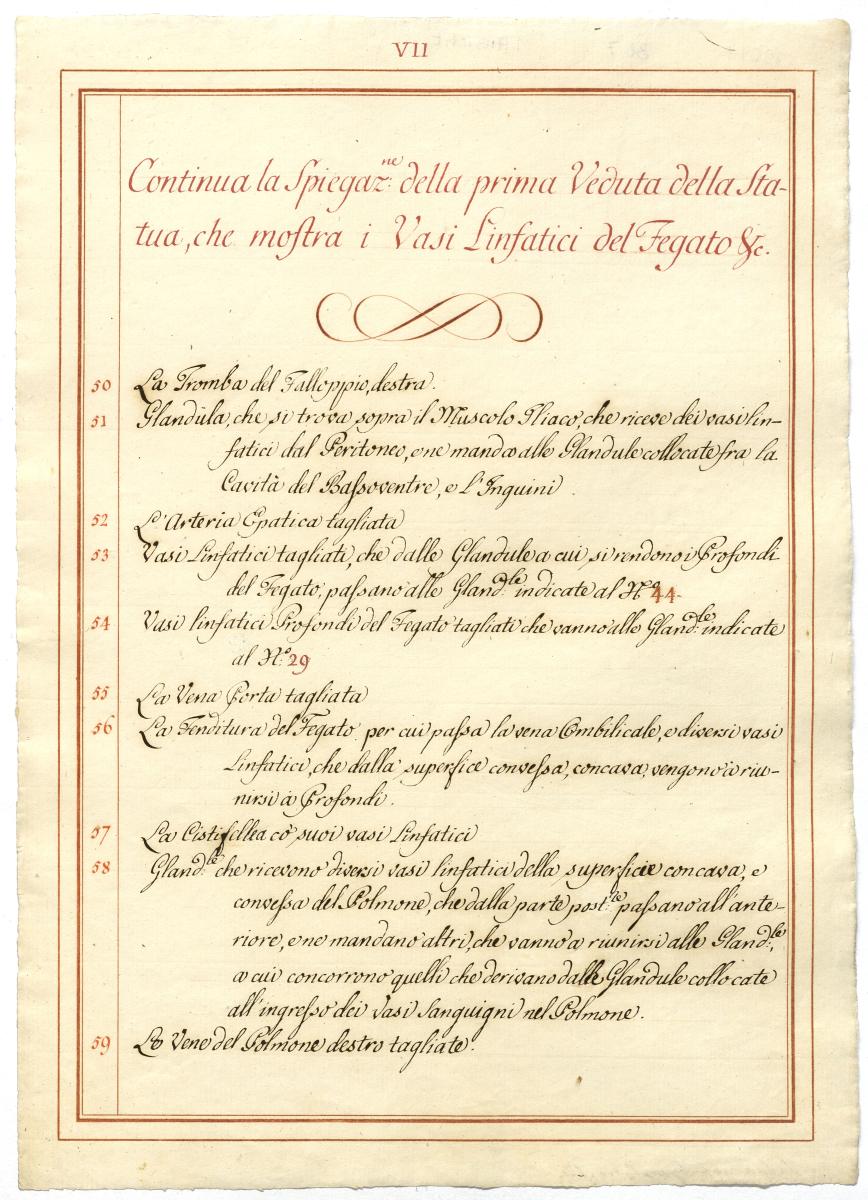 VII
Continua la Spiegaz:ne della prima Veduta della Sta-
tua, che mostra i Vasi Linfatici del Fegato &c.
50 La Tromba del Falloppio, destra.
51 Glandula, che si trova sopra il Muscolo Iliaco, che riceve dei vasi lin-
fatici dal Peritoneo, e ne manda alle Glandule collocate fra la
Cavità del Bassoventre, e l'Inguini.
52 L'Arteria Epatica tagliata
53 Vasi Linfatici tagliati, che dalle Glandule a cui si rendono i Profondi
del Fegato, passano alle Gland:le indicate al N.o 44.
54 Vasi linfatici Profondi del Fegato tagliati che vanno alle Gland:le indicate
al N:o 29
55 La Vena Porta tagliata
56 La Fenditura del Fegato per cui passa la vena Ombilicale, e diversi vasi
Linfatici, che dalla superfice convessa, concava, vengono a riu-
nirsi a Profondi.
57 La Cistifellea co' suoi vasi Linfatici
58 Gland:le che ricevono diversi vasi linfatici della superficie concava, e
convessa del Polmone, che dalla parte post:re passano all'ante-
riore, e ne mandano altri, che vanno a riunirsi alle Gland:le,
a cui concorrono quelli che derivano dalle Glandule collocate
all'ingresso dei Vasi Sanguigni nel Polmone.
59 Le Vene del Polmone destro tagliate.